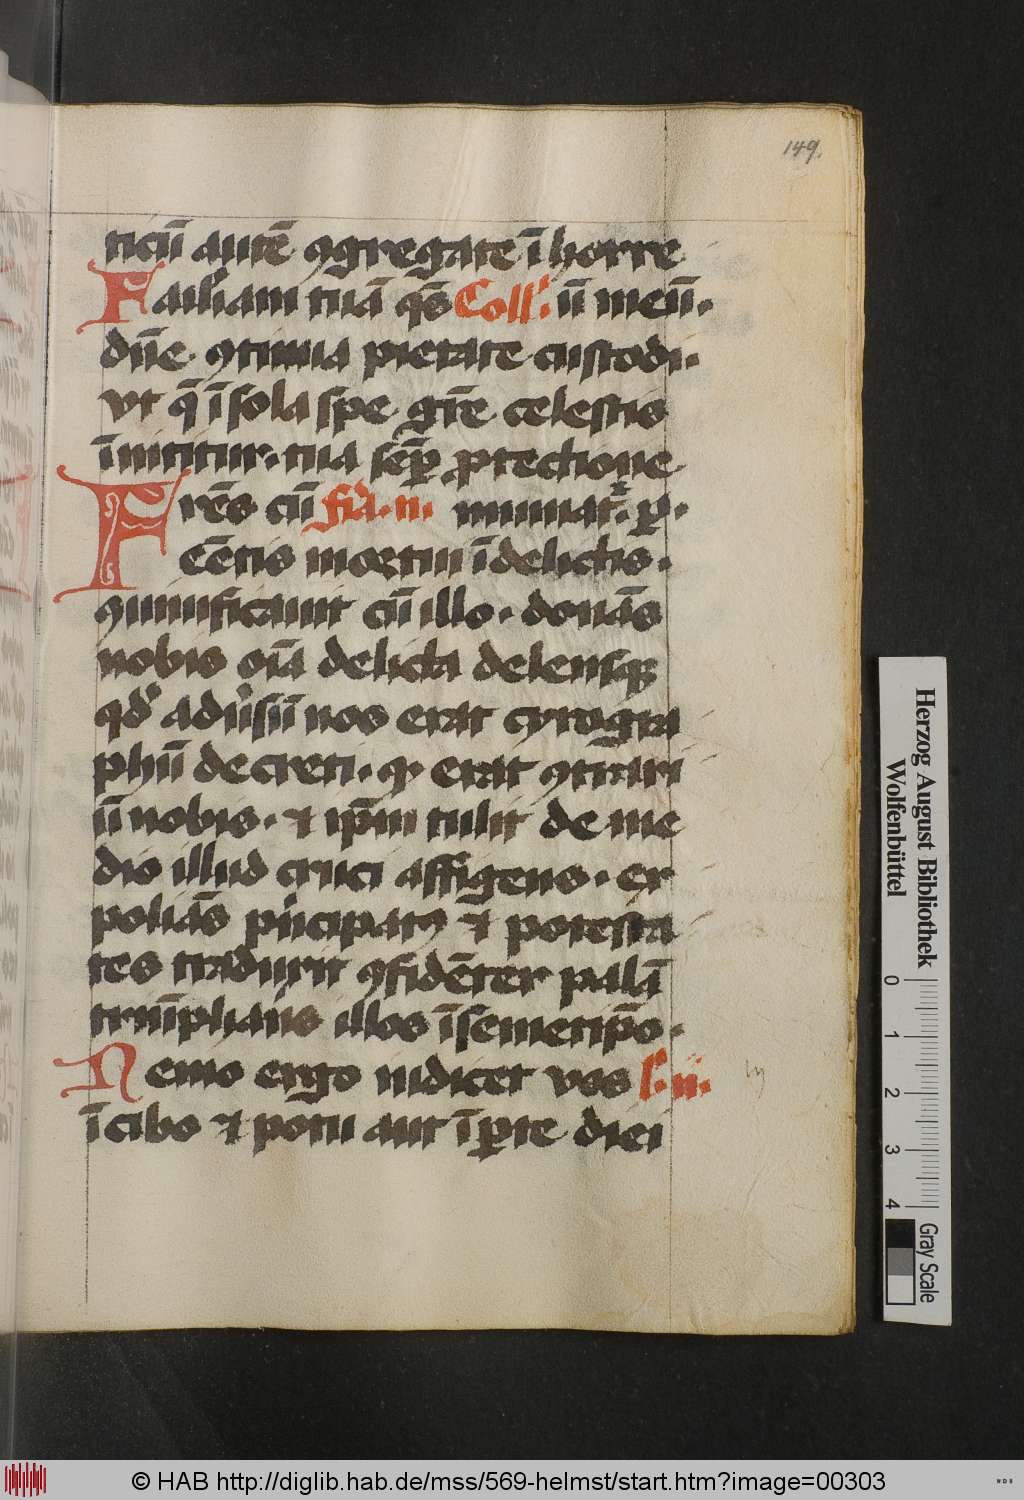 149.
ticū autē ꝯgregate ī horre
Failiam tuā qs̄ Coll'. ū meū.
dn̄e ꝯtinua pietate custodi.
vt q̄ ī sola spe gr̄e celestis
īnititur. tua sēp ꝓtectione
Frēs cū Fīa. II. muniat᷑. p.
cētis mortui ī delictis.
ꝯuiuificauit cū illo. donās
nobis oīa delicta delensqꝫ
qd' adu'sū nos erat cyrogra
phū decreti. qꝫ erat ꝯtrari
ū nobis. ⁊ ip̄m tulit de me
dio illud cruci affigens. ex
poliās pͥncipatꝯ ⁊ potesta
tes traduxit ꝯfidēter palā
triūphās illos ī semetip̄o.
Nemo ergo iudicet vos l'. II.
ī cibo ⁊ potu aut ī ꝑte diei
Herzog August Bibliothek
Wolfenbüttel
0 1 2 3 4
Gray Scale
© HAB http://diglib.hab.de/mss/569-helmst/start.htm?image=00303